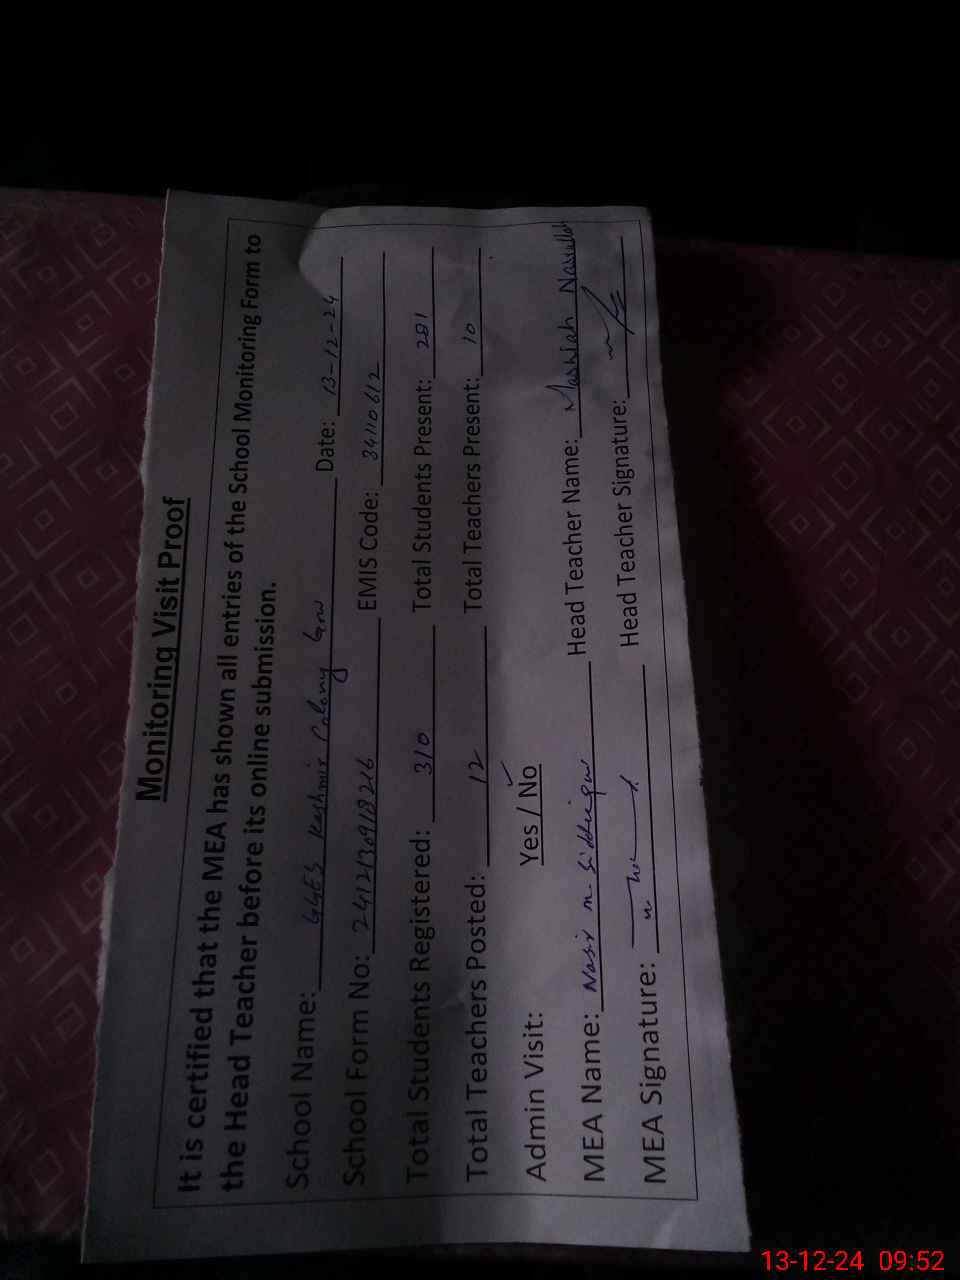 Monitoring Visit Proof
It is certified that the MEA has shown all entries of the School Monitoring Form to
the Head Teacher before its online submission.
School Name: GGES Kashmir Colony Grw Date: 13-12-24
School Form No: 2412130918216 EMIS Code: 34110612
Total Students Registered: 310 Total Students Present: 281
Total Teachers Posted: 12 Total Teachers Present: 10
Admin Visit: Yes / No ✓
MEA Name: Nasir M. Siddique Head Teacher Name: Mashiah Nasrullah
MEA Signature: Head Teacher Signature:
13-12-24 09:52